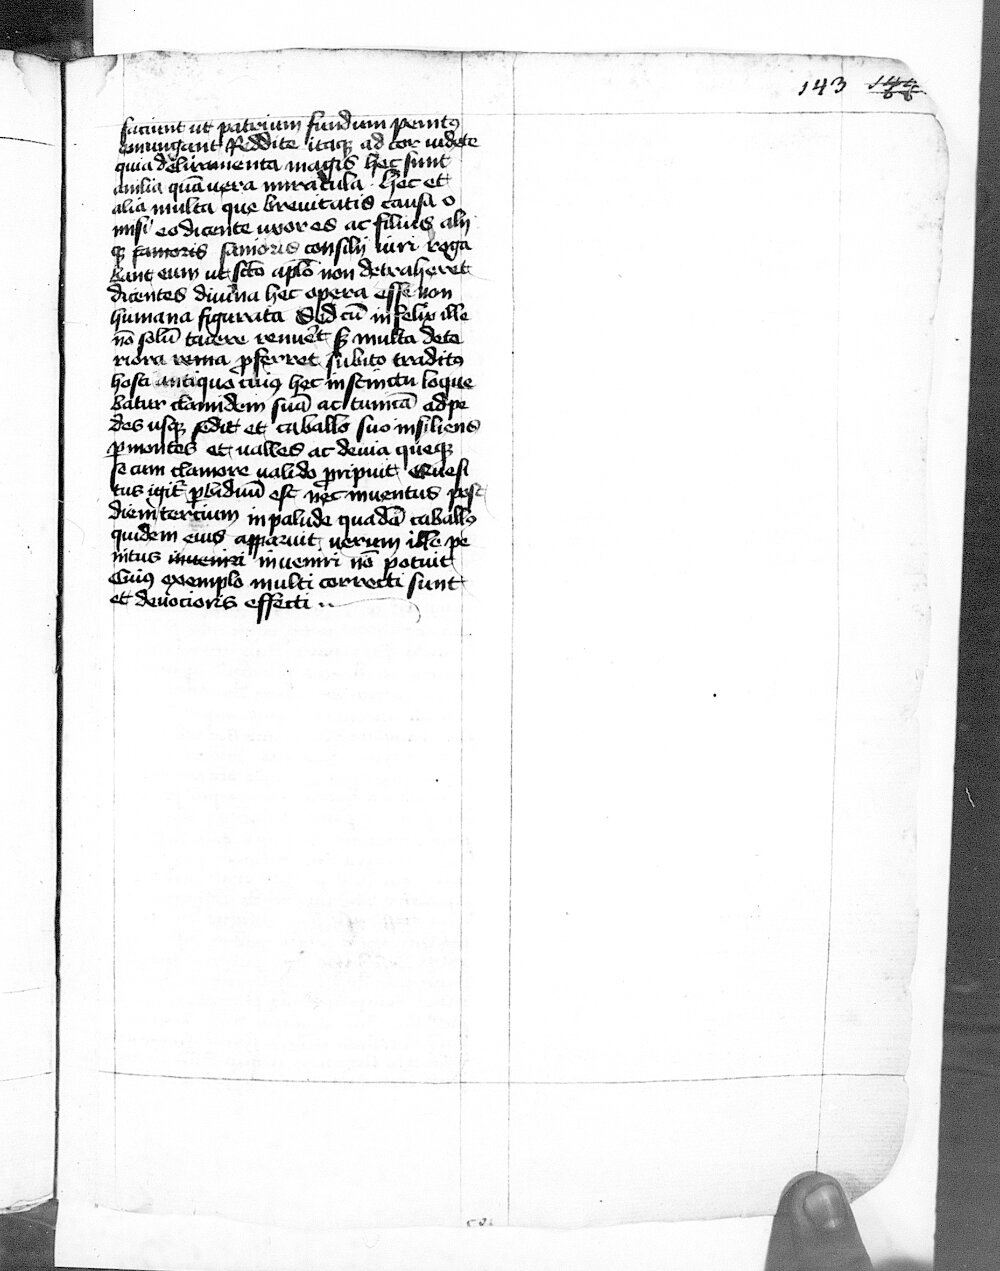 143 144
faciunt ut patrium fundum penitus
emungant Reddite itaque ad cor videte
quia deliramenta magis hec sunt
anilia quam vera miracula . Hec et
alia multa que brevitatis causa o
misi eo dicente uxor es ac filius alij
que sanioris consilij viri roga
bant eum ut sancto apostolo non detraheret
dicentes divina hec opera esse non
humana figurata Sed cum infelix ille
non solum tacere renueret sed multa dete
riora verba proferret subito traditus
hosti antiquo cuius hec instinctu loque
batur clamidem suam ac tunicam ad pe
des usque scidit et caballo suo insiliens
per montes et valles ac devia queque
se cum clamore valido proripuit Quesi
tus igitur per biduum est nec inventus post
diem tercium in palude quadam caballus
quidem eius apparuit verum ille pe
nitus inveniri non potuit
Cuius exemplo multi correcti sunt
et devociores effecti ..